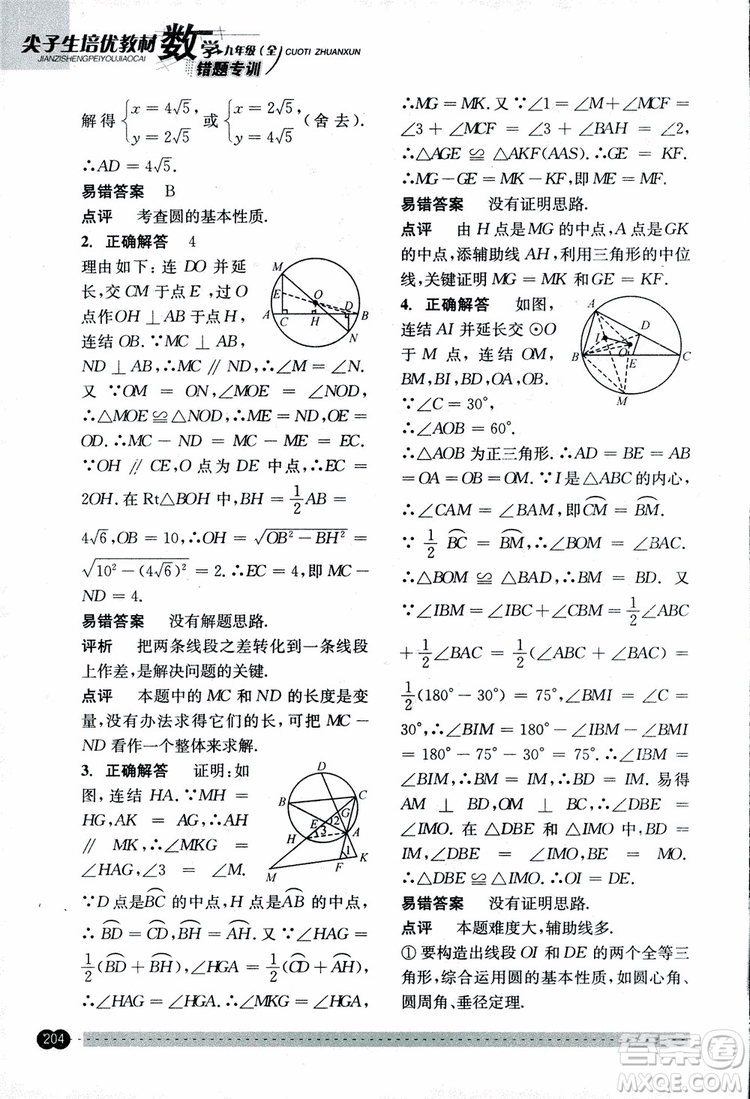 尖子生培优教材 数学 九年级(全) CUOTI ZHUANXUN
JIANZISHENGPEIYOUJIAOCAI 错题专训
解得{x=4√5, y=2√5 或{x=2√5, y=4√5 (舍去).
∴AD=4√5.
易错答案 B
点评 考查圆的基本性质.
2. 正确解答 4
理由如下:连 DO 并延
长,交 CM 于点 E,过 O
点作 OH⊥AB 于点 H,
连结 OB. ∵MC⊥AB,
ND⊥AB,∴MC∥ND,∴∠M=∠N.
又∵OM=ON,∠MOE=∠NOD,
∴△MOE≌△NOD,∴ME=ND,OE=
OD. ∴MC-ND=MC-ME=EC.
∵OH∥CE,O 点为 DE 中点,∴EC=
2OH. 在 Rt△BOH 中,BH=1/2AB=
4√6,OB=10,∴OH=√(OB²-BH²)=
√(10²-(4√6)²)=2. ∴EC=4,即 MC-
ND=4.
易错答案 没有解题思路.
评析 把两条线段之差转化到一条线段
上作差,是解决问题的关键.
点评 本题中的 MC 和 ND 的长度是变
量,没有办法求得它们的长,可将 MC-
ND 看作一个整体来求解.
3. 正确解答 证明:如
图,连结 HA. ∵MH=
HG,AK=AG,∴AH
∥MK. ∴∠MKG=
∠HAG,∠3=∠M.
∵D 点是⌒BC的中点,H 点是⌒AB的中点,
∴⌒BD=⌒CD,⌒BH=⌒AH. 又∵∠HAG=
1/2(⌒BD+⌒BH),∠HGA=1/2(⌒CD+⌒AH),
∴∠HAG=∠HGA. ∴∠MKG=∠HGA.
∴MG=MK. 又∵∠1=∠M+∠MCF=
∠3+∠MCF=∠3+∠BAH=∠2,
∴△AGE≌△AKF(AAS). ∴GE=KF.
∴MG-GE=MK-KF,即 ME=MF.
易错答案 没有证明思路.
点评 由 H 点是 MG 的中点,A 点是 GK
的中点,添辅助线 AH,利用三角形的中位
线,关键证明 MG=MK 和 GE=KF.
4. 正确解答 如图,
连结 AI 并延长交⊙O
于 M 点,连结 OM,
BM,BI,BO,OA.
∵∠C=30°,
∴∠AOB=60°.
∴△AOB 为正三角形. ∴AD=BE=AB
=OA=OB=OM. ∵I 是△ABC 的内心,
∴∠CAM=∠BAM,即⌒CM=⌒BM.
∵1/2⌒BC=⌒BM,∴∠BOM=∠BAC.
∴△BOM≌△BAD. ∴BM=BD. 又
∵∠IBM=∠IBC+∠CBM=1/2∠ABC
+1/2∠BAC=1/2(∠ABC+∠BAC)=
1/2(180°-30°)=75°,∠BMI=∠C=
30°,∴∠BIM=180°-∠BMI-∠IBM
=180°-75°-30°=75°=∠IBM.
∴IM=BM=BD,∴BD=IM. 易得
AM⊥BD,OM⊥BC,∴∠DBE=
∠IMO. 在△DBE 和△IMO 中,BD=
IM,∠DBE=∠IMO,BE=MO.
∴△DBE≌△IMO. ∴OI=DE.
易错答案 没有证明思路.
点评 本题难度大,辅助线多.
①要构造出线段 OI 和 DE 的两个全等三
角形,综合运用圆的基本性质,如圆心角、
圆周角、垂径定理.
204
答案圈
MXQE.COM